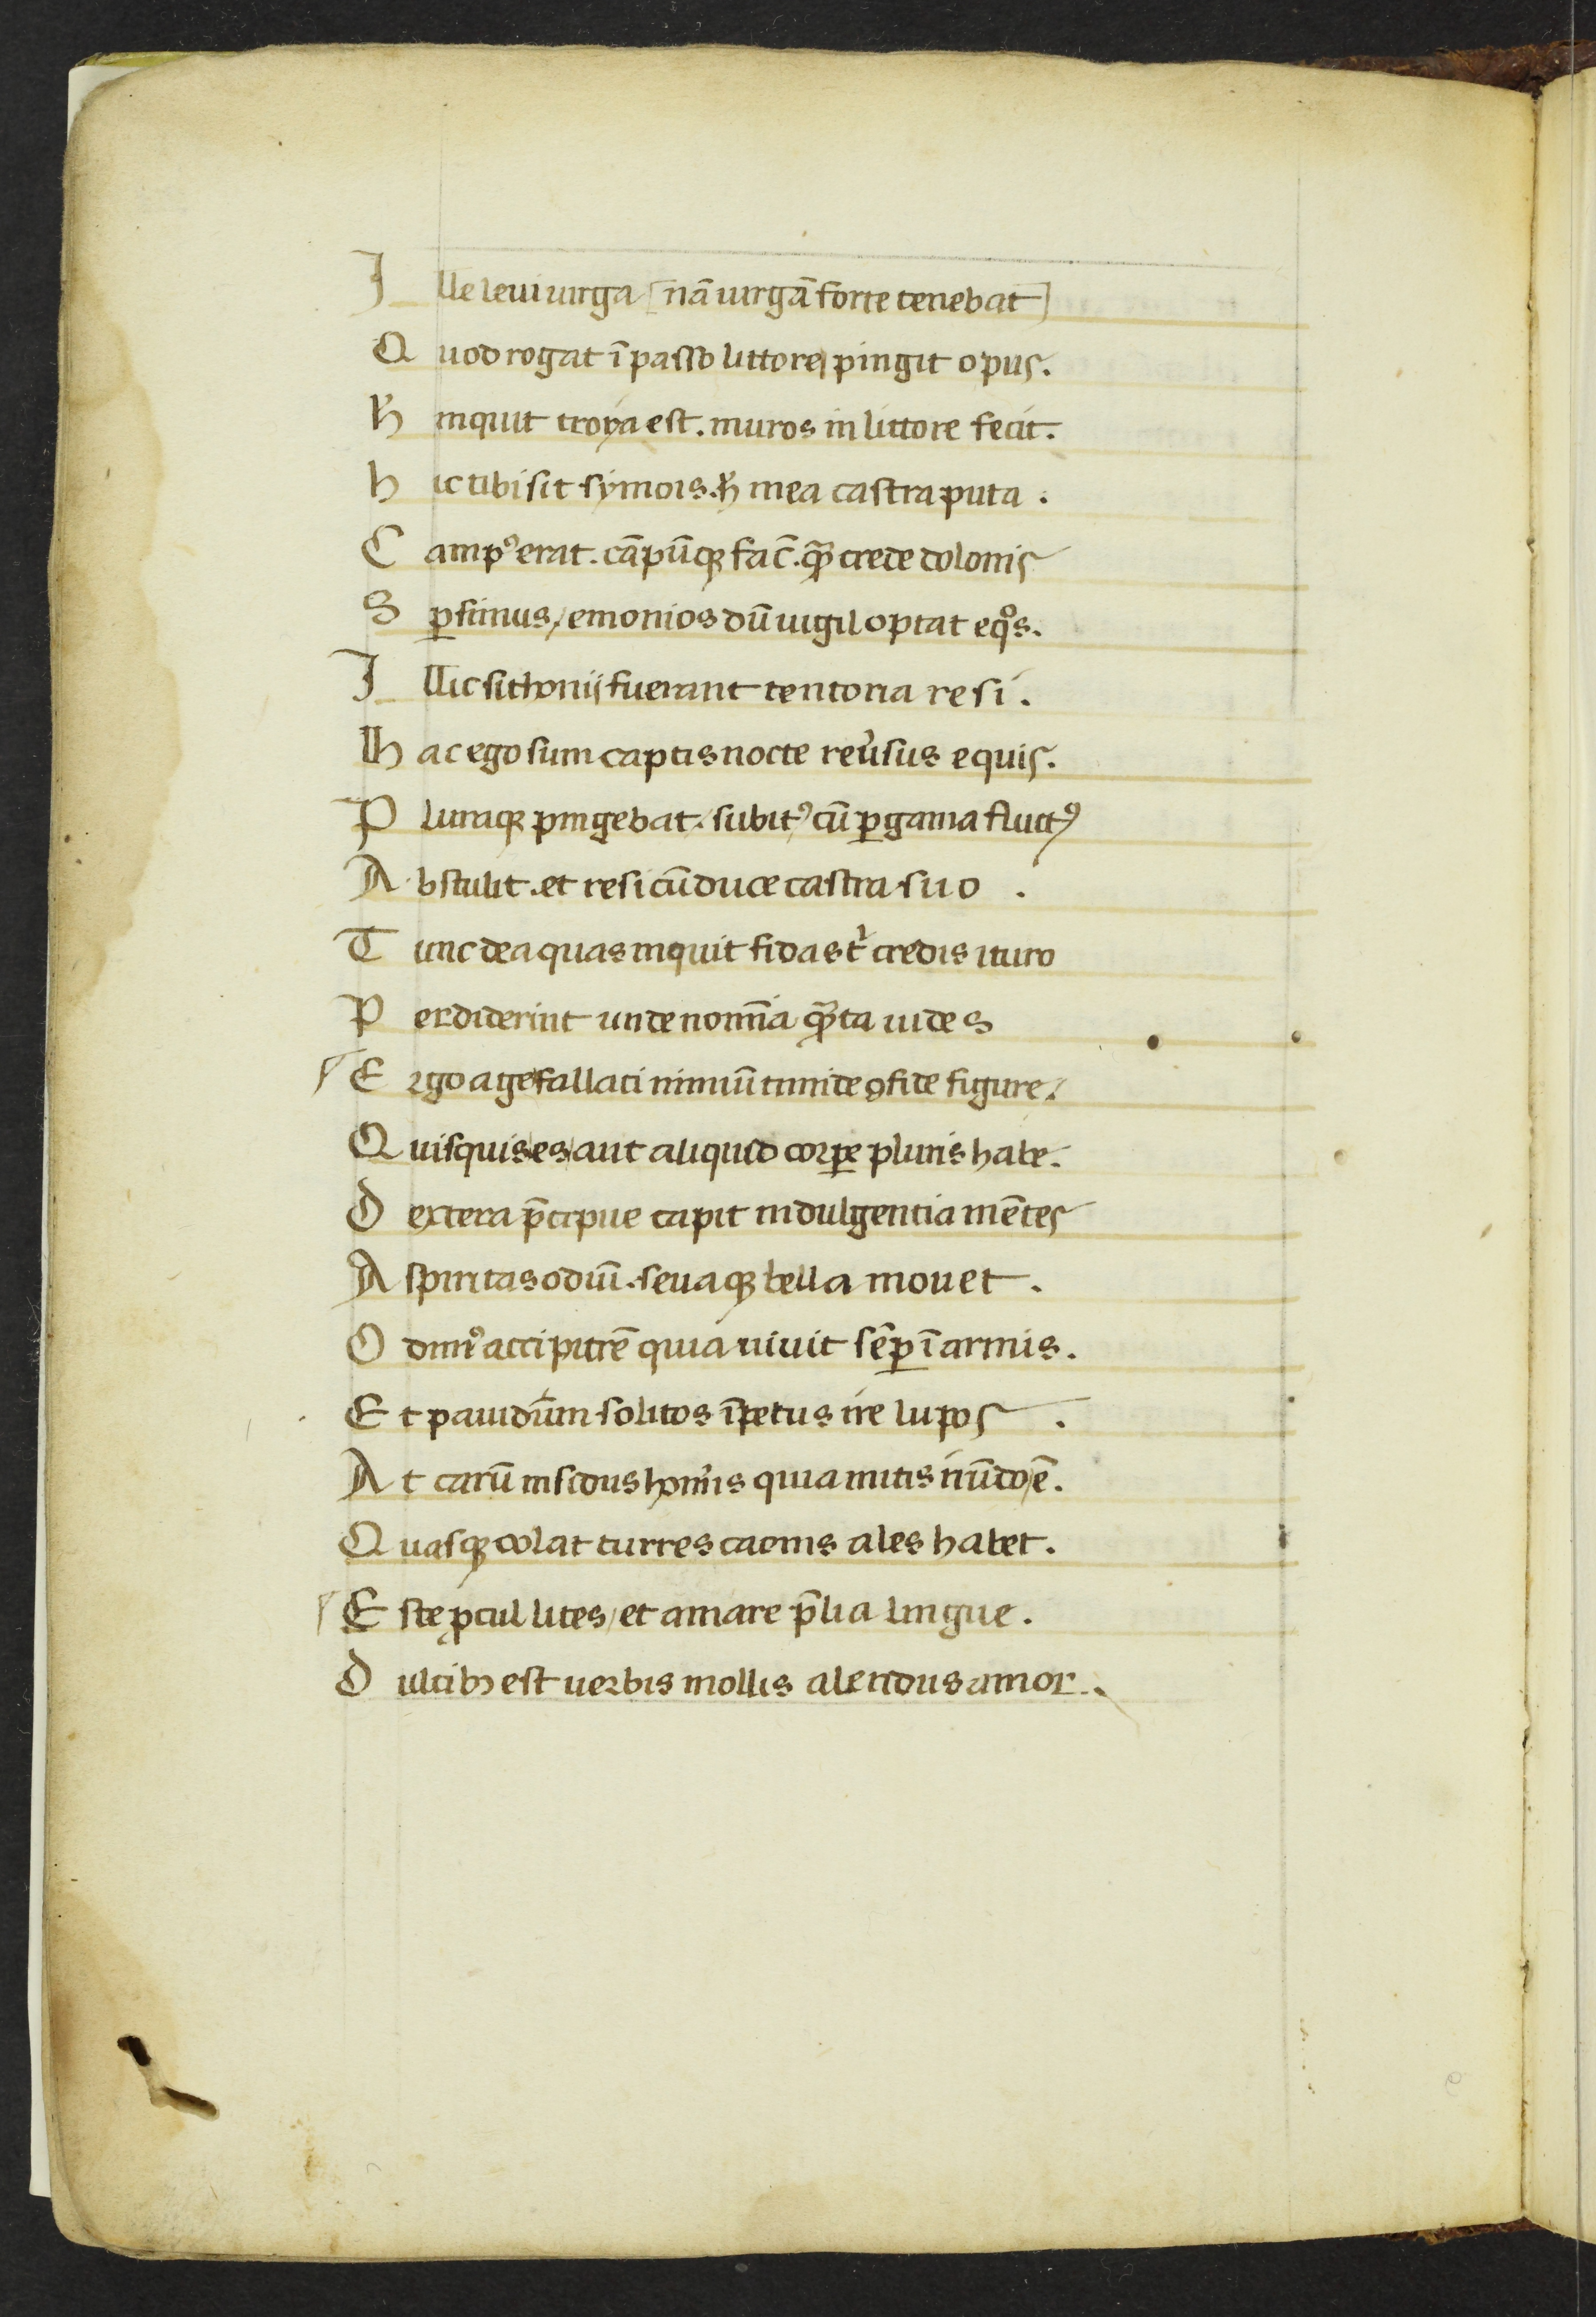 Ille leui uirga [nā uirgā forte tenebat]
Quod rogat ī passo littore pingit opus.
h̄ inquit troya est. muros in littore fecit.
hic tibi sit symois. h̄ mea castra puta.
Campꝰ erat. cāpūqꝫ fac̄. quē crede dolonis
Sꝑsimus / emonios dū uigil optat eqͦs.
Illic sithonij fuerant tentoria resi.
Hac ego sum captis nocte reu̓sus equis.
Pluraqꝫ pingebat. subitꝰ cū ꝑgama fluctꝰ
Abstulit. et resi cū duce castra suo.
Tunc dea quas inquit fidas t̓ credis ituro
Perdiderint unde nomīa quāta uides
Ergo age fallaci nimiū timide ꝯfide figure.
Quisquis es aut aliquid corꝑe pluris habe.
Dextera p̄cipue capit indulgentia mētes
Asperitas odiūı. seuaqꝫ bella mouet.
Odimꝰ accipitrē quia uiuit sēꝑ ī armis.
Et pauidum solitos īpetus ire lupos.
At carū insidus homīs quia mitis irūdo ē.
Quasqꝫ colat turres caonis ales habet.
Este ꝓcul lites / et amare p̄lia lingue.
Dulcibꝫ est uerbis mollis alendus amor.